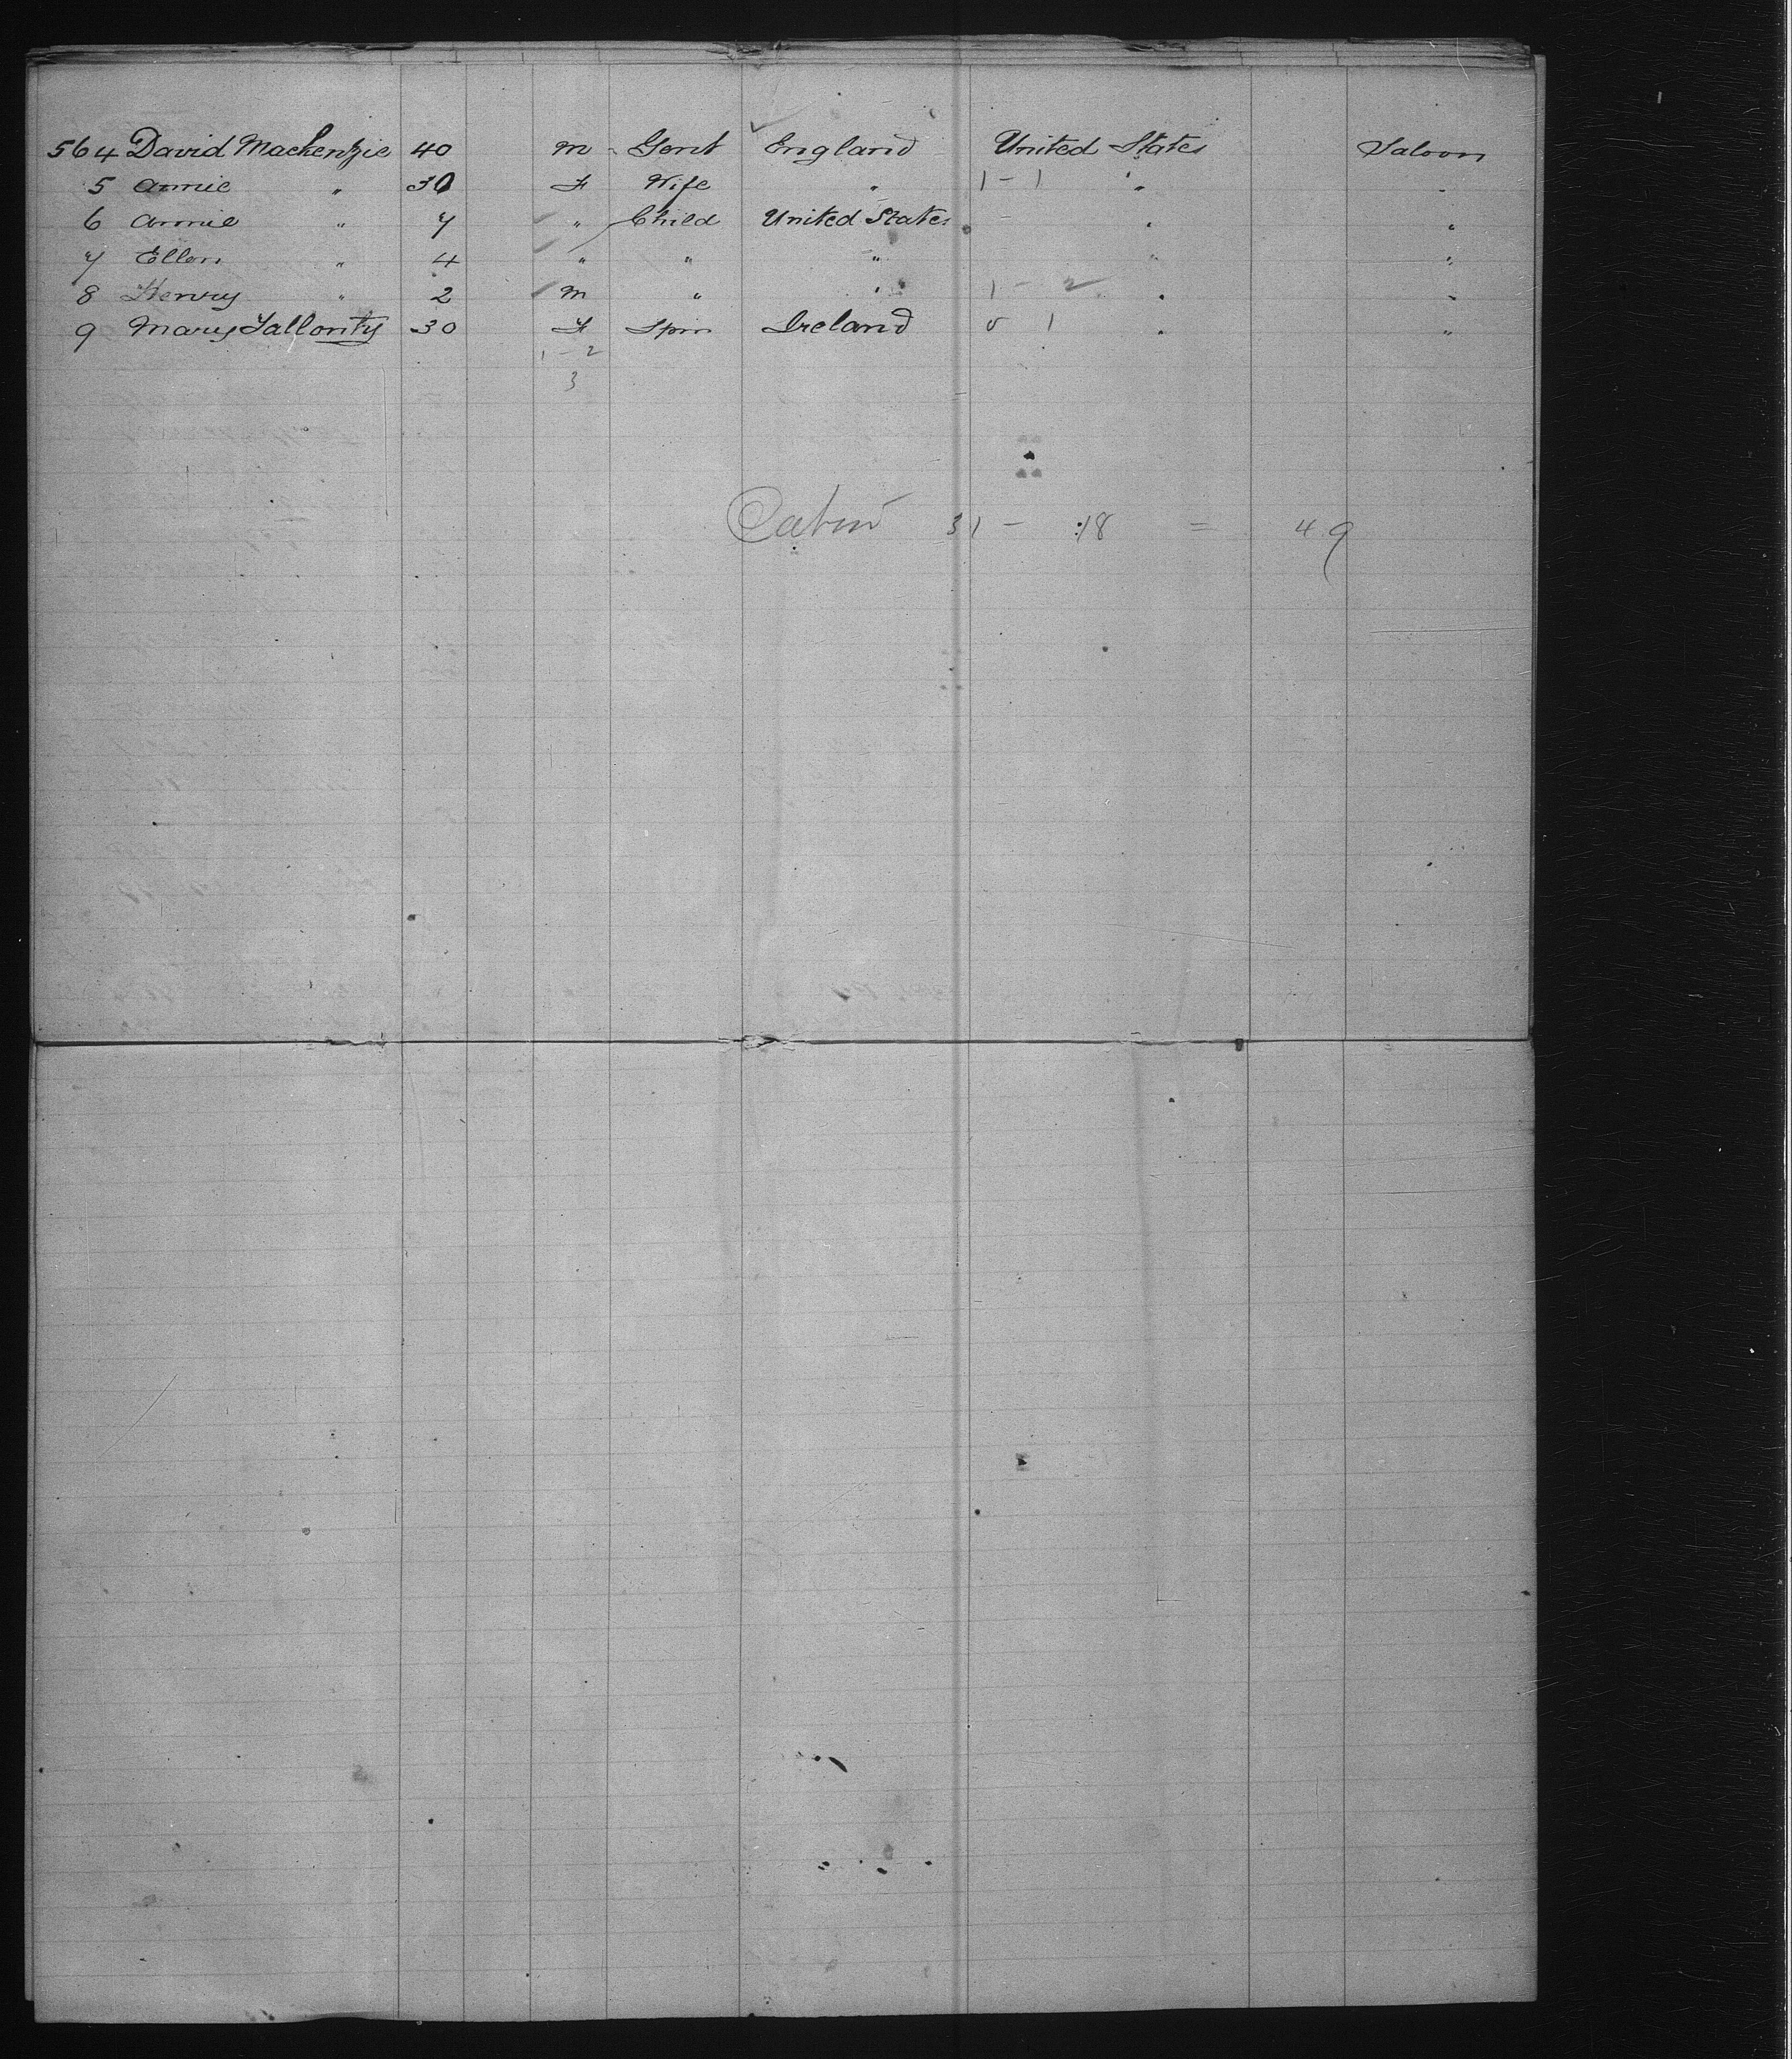 564 David Mackenzie 40 M Gent England United States Saloon
5 Annie " 30 F Wife " 1 - 1 " "
6 Annie " 7 " Child United States " "
7 Ellen " 4 " " " " "
8 Henry " 2 M " " 1 - 2 " "
9 Mary 30 F Spin Ireland 0 1 " "
1 - 2
3
Cabin 31 - 18 = 49